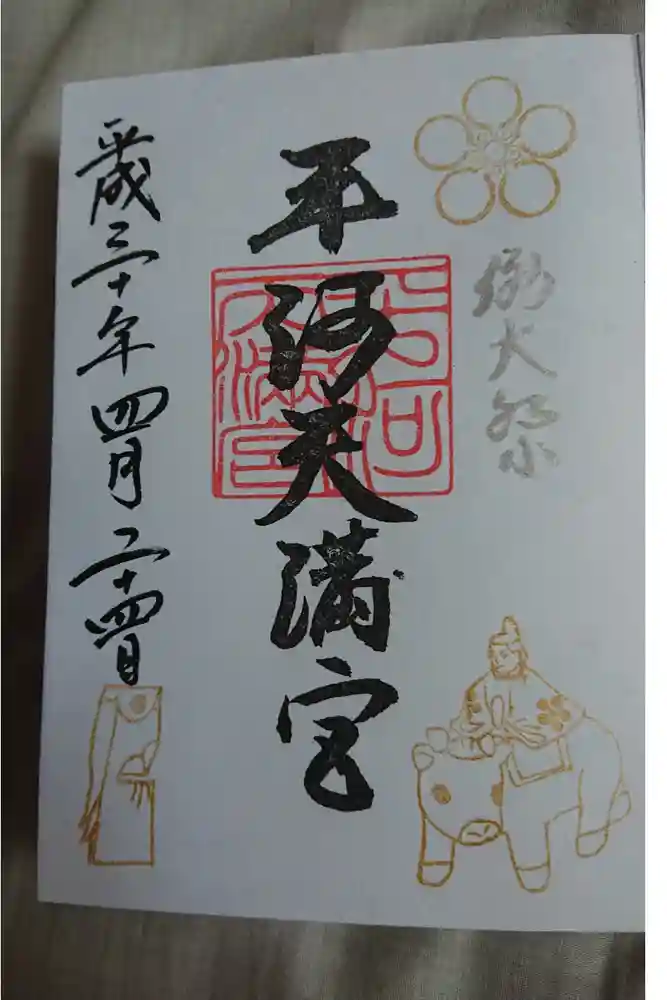 例大祭
平河天満宮
平成三十年四月二十四日